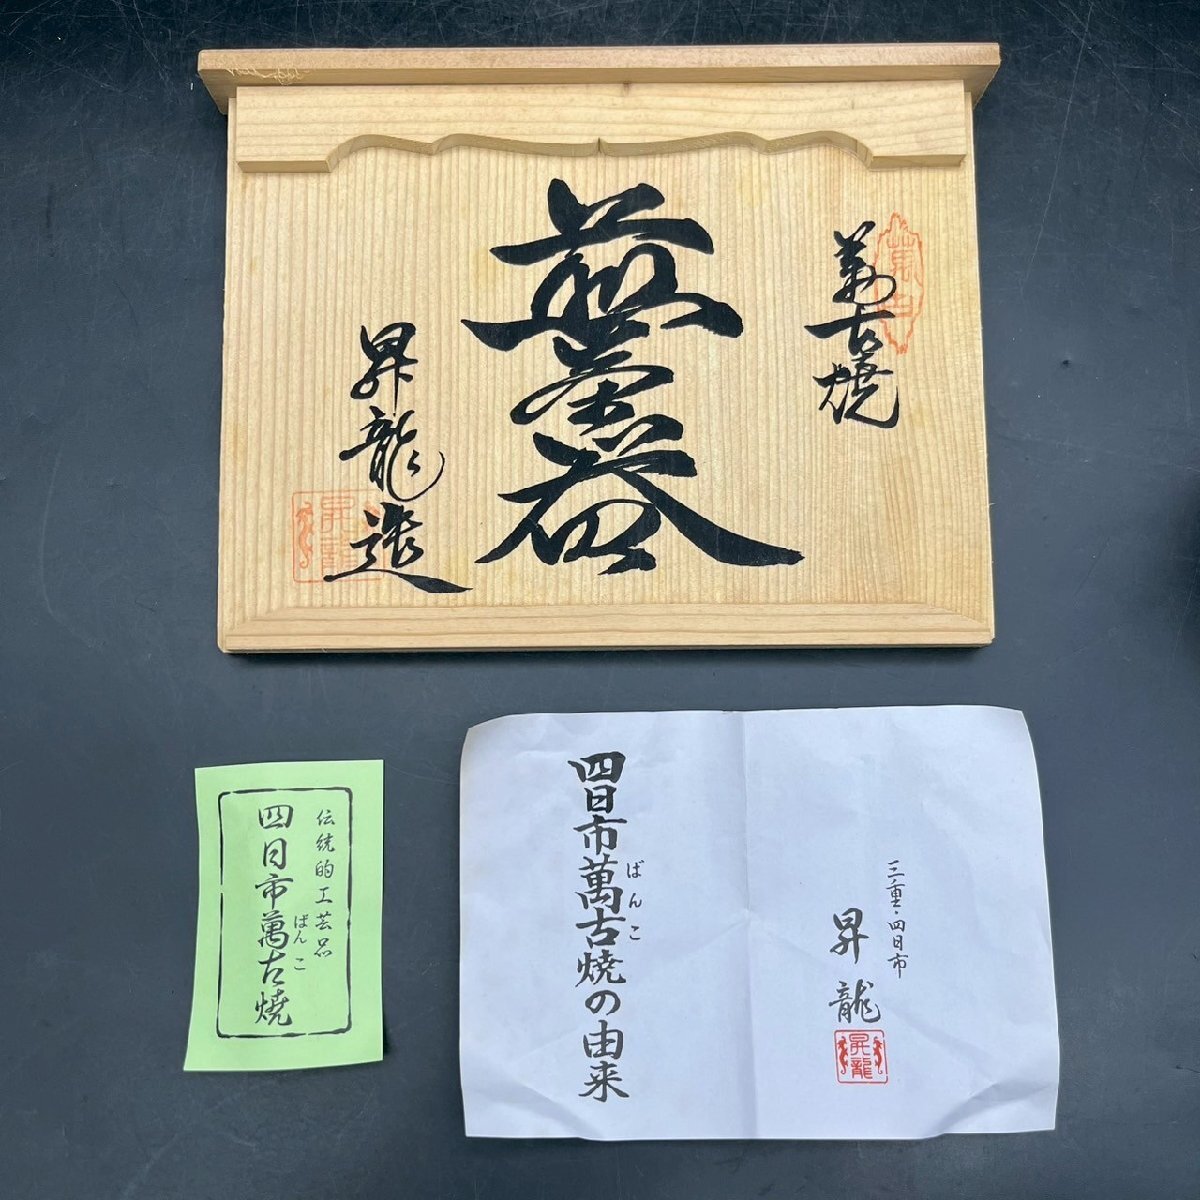 萬古焼
萬古
煎茶器
昇龍造
昇龍
伝統的工芸品
四日市萬古焼
ばんこ
三重・四日市
昇龍
昇龍
四日市萬古焼の由来
ばんこ